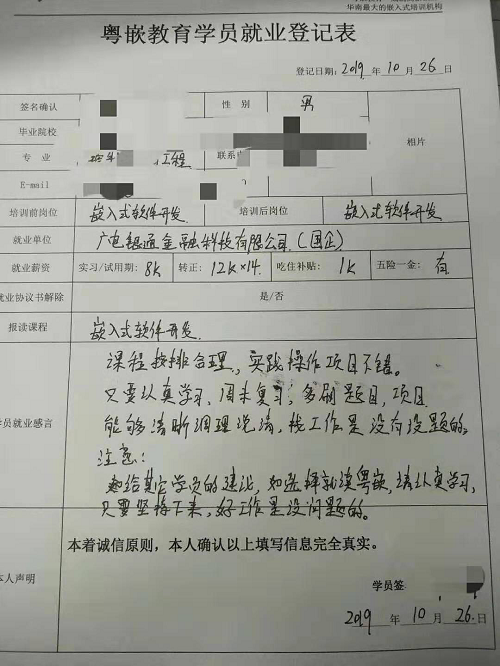 华南最大的嵌入式培训机构
粤嵌教育学员就业登记表
登记日期: 2019 年 10 月 26 日
签名确认 性 别 男
毕业院校 相片
专 业 工程 联系
E-mail
培训前岗位 嵌入式软件开发 培训后岗位 嵌入式软件开发
就业单位 广电银通金融科技有限公司 (国企)
就业薪资 实习/试用期: 8k 转正: 12k×14. 吃住补贴: 1k 五险一金: 有
就业协议书解除 是/否
报读课程 嵌入式软件开发.
课程按排合理, 实践操作项目不错。
只要认真学习, 周末复习; 多刷题目, 项目
学员就业感言 能够清晰调理说清, 找工作是没有没题的。
注意:
给其它学员的建议, 如选择就读粤嵌, 请认真学习,
只要坚持下来, 好工作是没问题的。
本着诚信原则，本人确认以上填写信息完全真实。
本人声明
学员签
2019 年 10 月 26 日